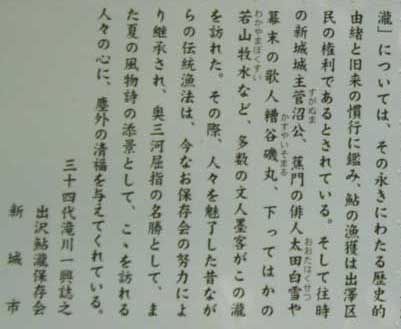 瀧」については、その永きにわたる歴史的
由緒と旧来の慣行に鑑み、鮎の漁獲は出澤区
民の権利であるとされている。そして往時
の新城城主菅沼公、蕉門の俳人太田白雪や
すがぬま
おおたはくせつ
幕末の歌人糟谷磯丸、下ってはかの
かすやいそまる
若山牧水など、多数の文人墨客がこの瀧
わかやまぼくすい
を訪れた。その際、人々を魅了した昔なが
らの伝統漁法は、今なお保存会の努力によ
り継承され、奥三河屈指の名勝として、ま
た夏の風物詩の添景として、こゝ訪れる
人々の心に、塵外の清福を与えてくれている。
三十四代滝川一興誌之
出沢鮎瀧保存会
新城市